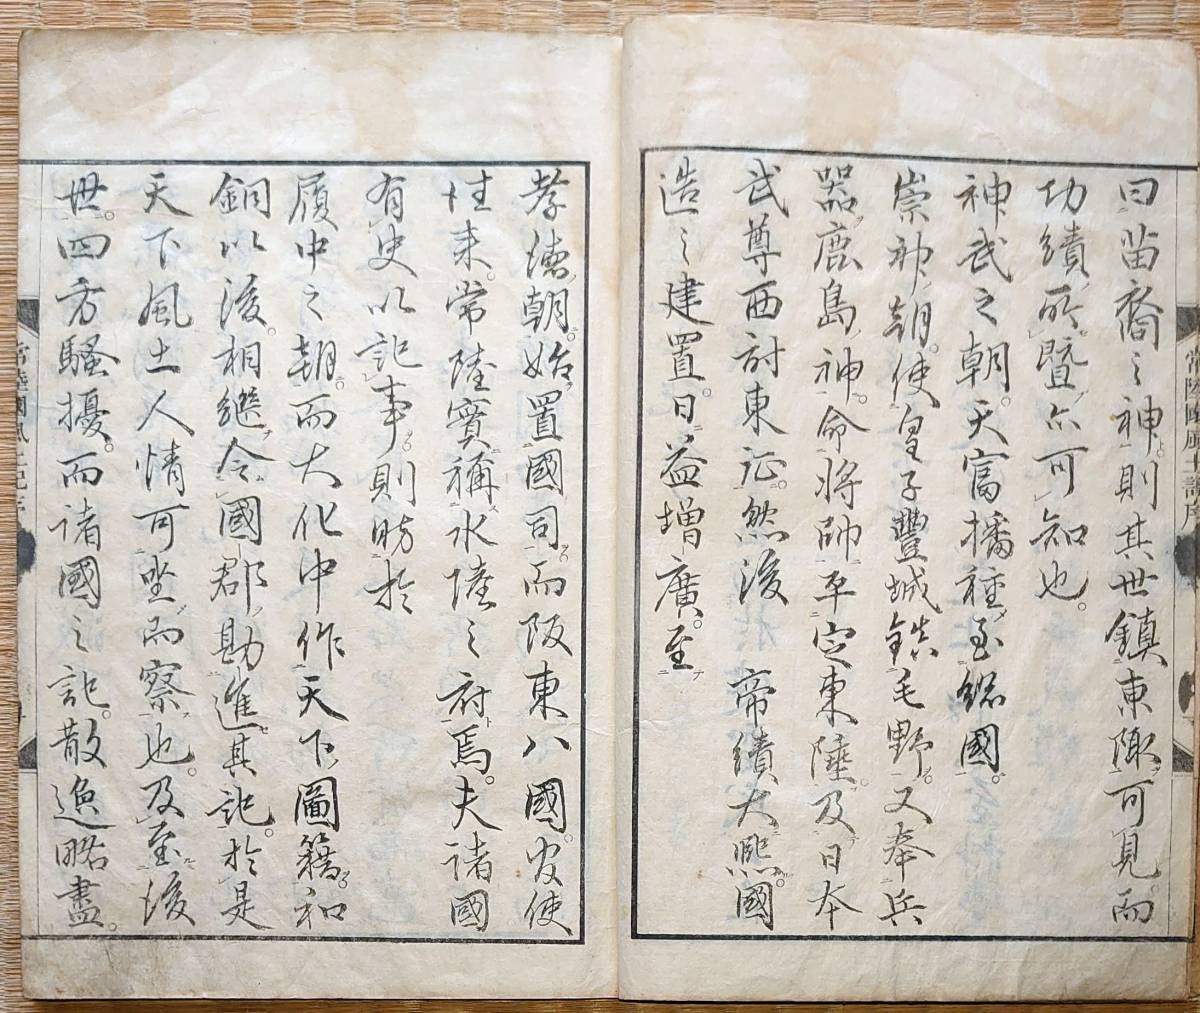 常陸國風土記序
曰苗裔之神。則其世鎮東陬。可見而
功績所曁亦可知也。
神武之朝。天富播種至總國。
崇神朝。使皇子豐城鎮毛野。又奉兵
器鹿島神。命將帥平定東陸。及日本
武尊西討東征。然後 帝績大熙。國
造之建置。日益增廣。至
孝德朝。始置國司。而阪東八國。官使
往来。常陸實稱水陸之府焉。夫諸國
有史以記事。則昉於
履中之朝。而大化中作天下圖籍。和
銅以後。相繼令國郡勘進其記。於是
天下風土人情可坐而察也。及至後
世。四方騷擾。而諸國之記。散逸略盡。
常陸國風土記序